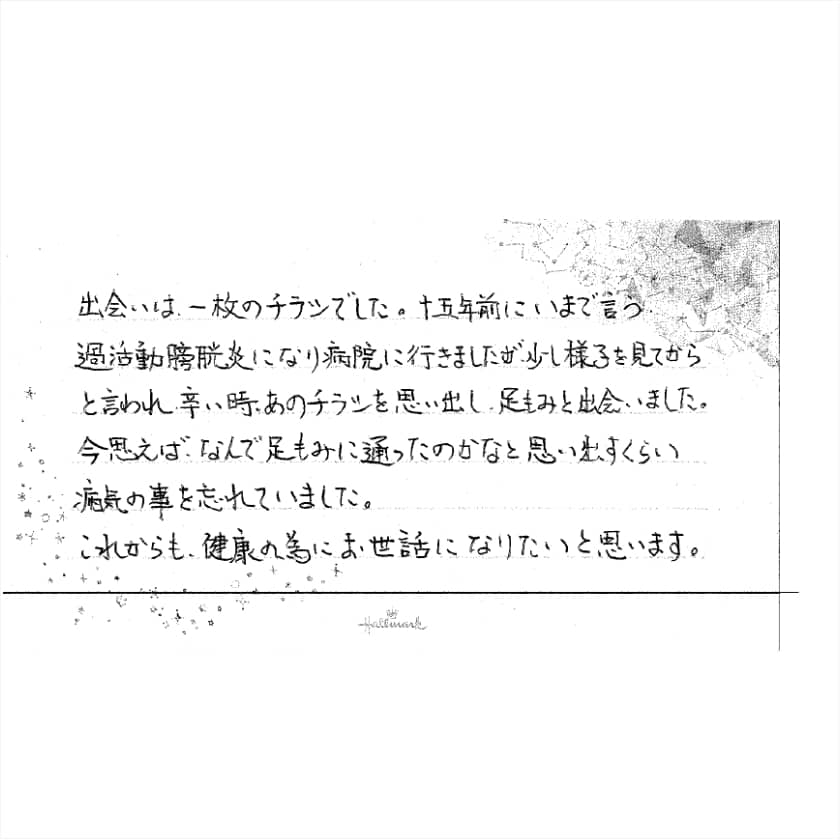 出会いは、一枚のチラシでした。十五年前にいまで言う
過活動膀胱炎になり病院に行きましたが少し様子を見てから
と言われ、辛い時、あのチラシを思い出し、足もみと出会いました。
今思えば、なんで足もみに通ったのかなと思い出すくらい
病気の事を忘れていました。
これからも、健康の為にお世話になりたいと思います。
Hallmark